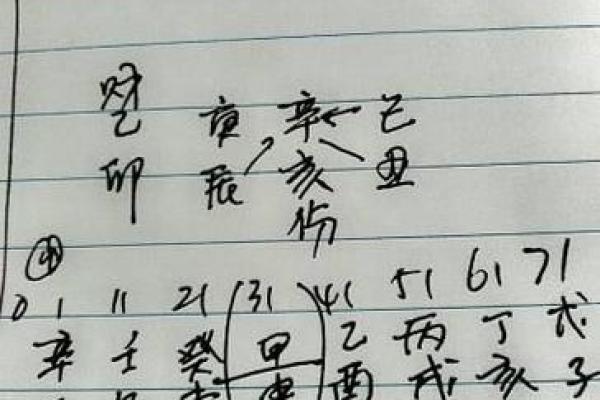 财
乙 庚 辛 己
卯 辰 亥 丑
伤
0 1 11 21 31 41 51 61 71
辛 壬 癸 甲 乙 丙 丁 戊
酉 戌 亥 子